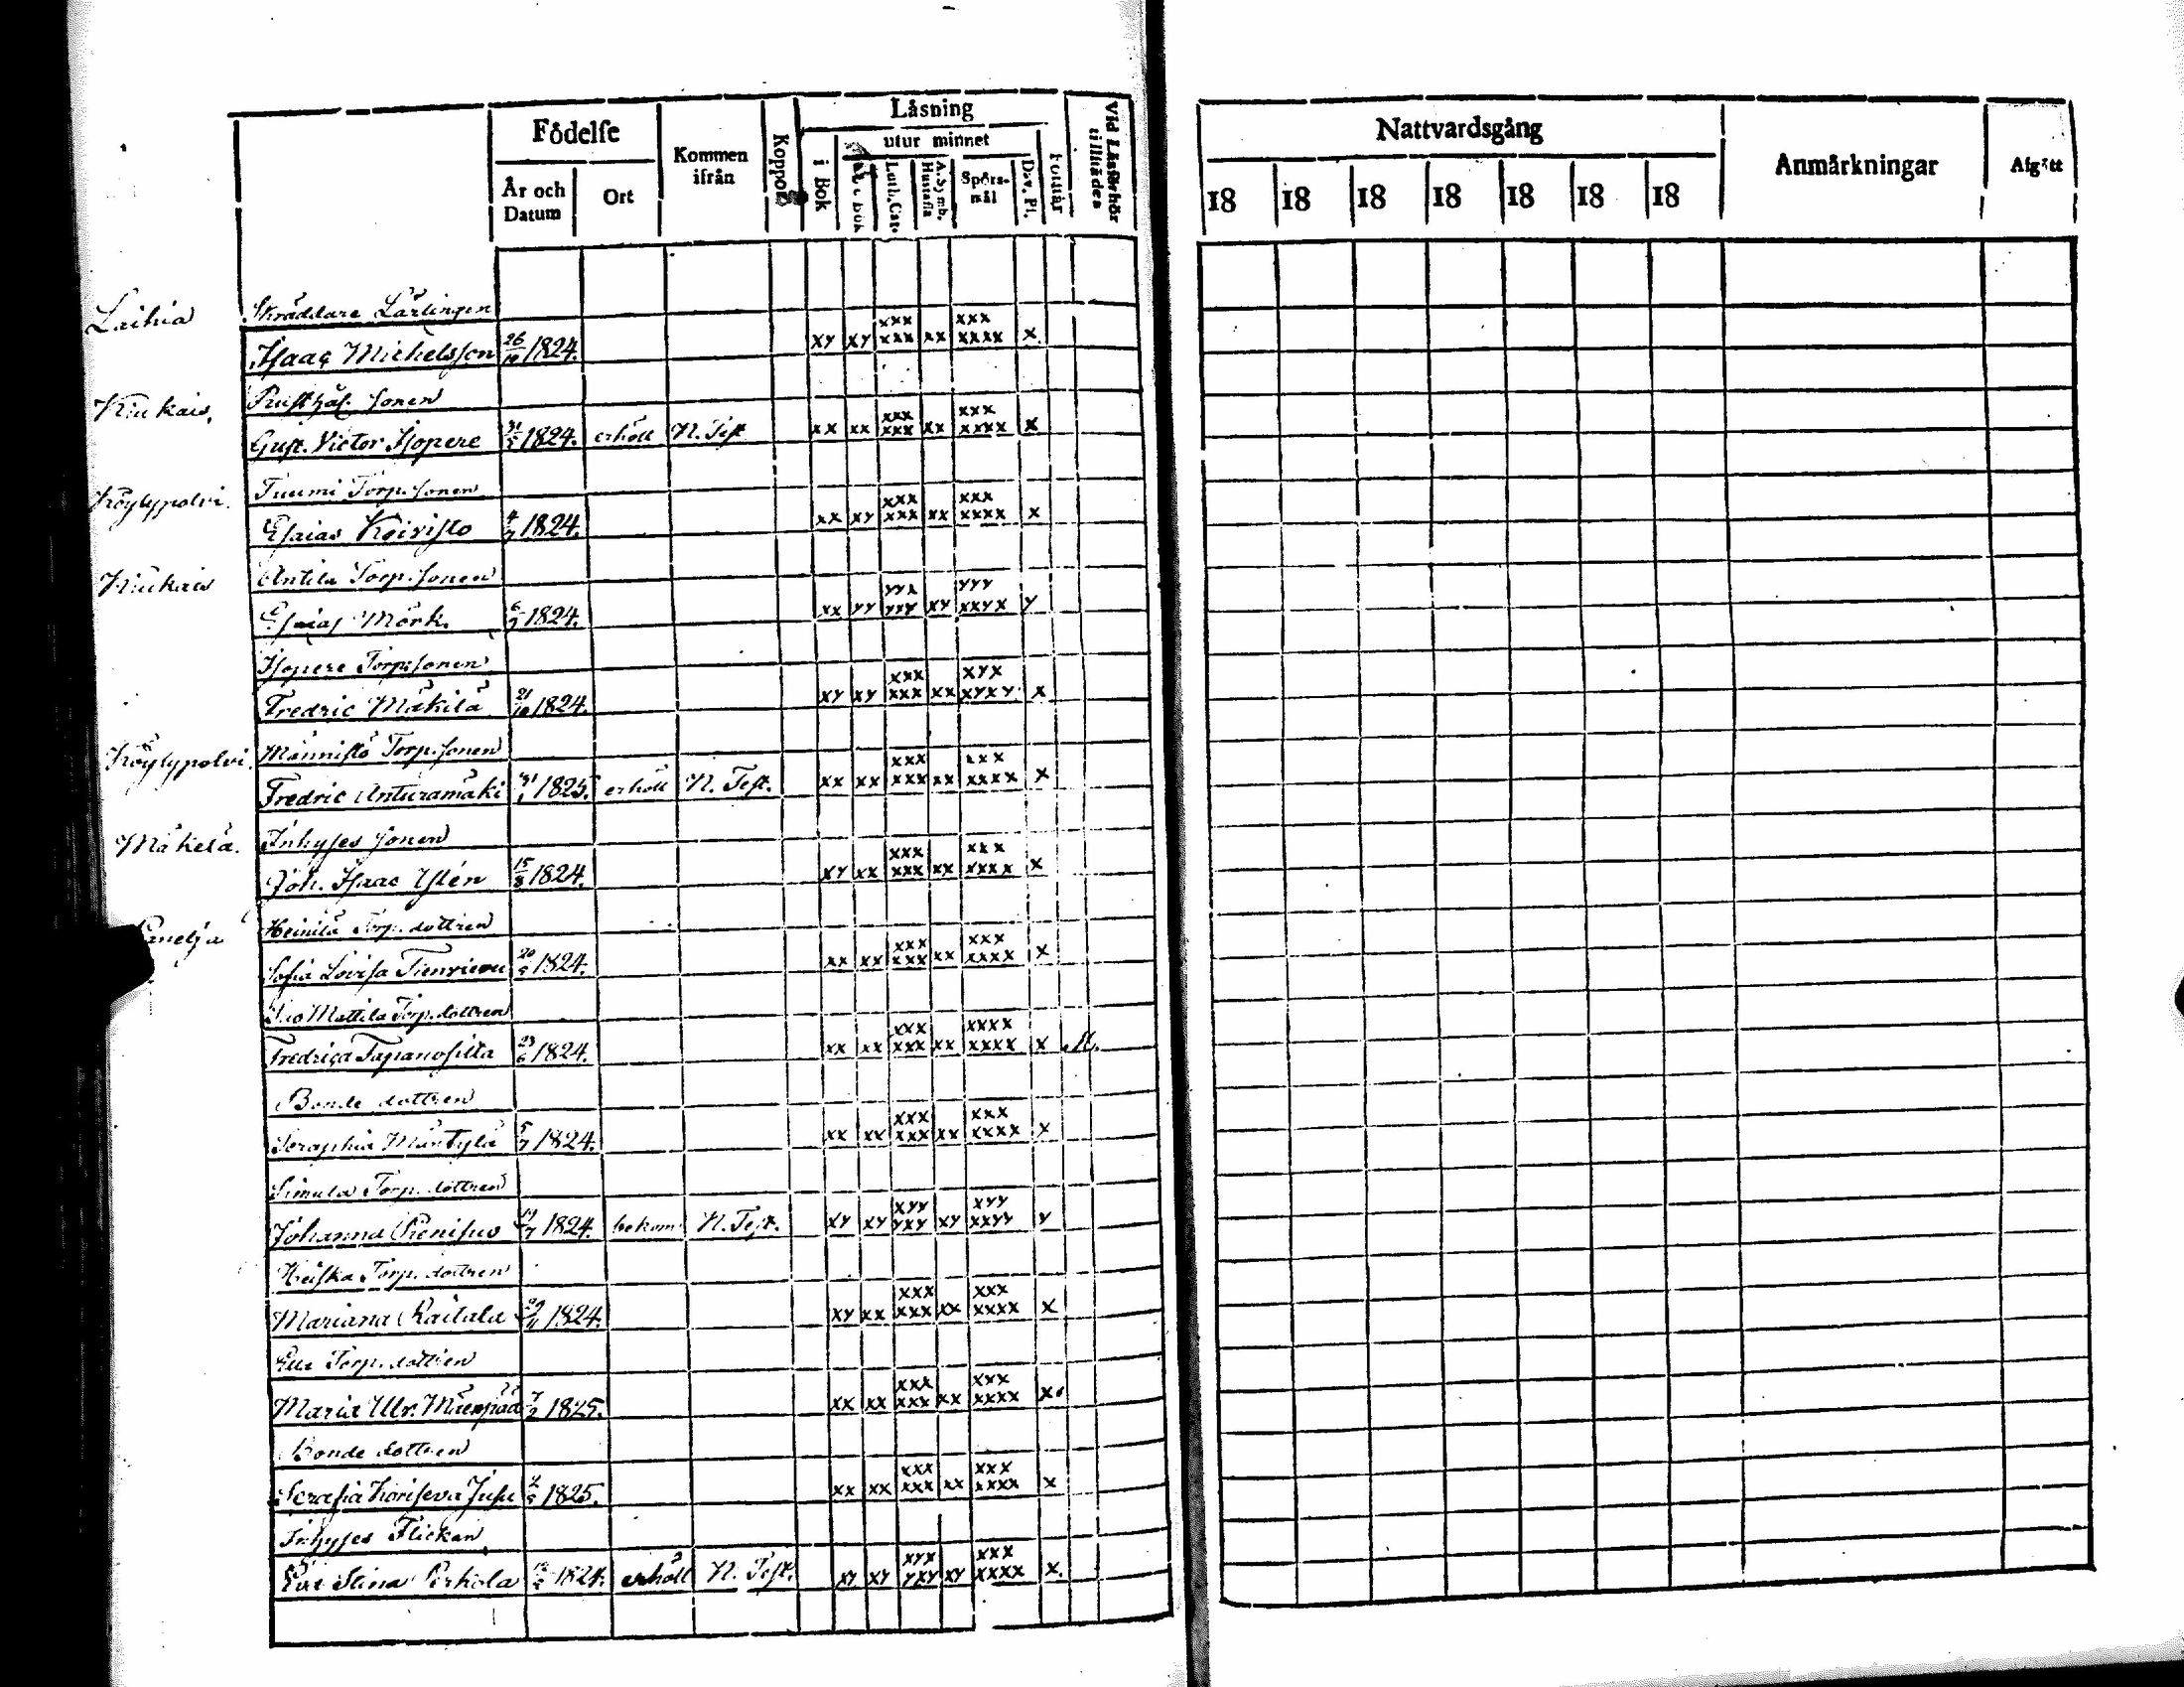 Födelse
Kommen ifrån
Koppor
Läsning
utur minnet
Vid Läsförhör tillstädes
År och Datum
Ort
i Bok
Luth. Cat.
A. Symb. Hustafla
Spörsmål
Dav. Ps.
Nattvardsgång
Anmärkningar
Afgått
18 18 18 18 18 18 18
Laihia Skräddare Lärlingen
Isaac Michelsson 26/10 1824. xy xy xxx xxx xx xxx xxxx x
Kiukais, Rusthål. sonen
Gust. Victor Isopere 31/5 1824. erhöll N. Test xx xx xxx xxx xx xxx xxxx x
Köylypolvi. Tuumi Torp. sonen
Esaias Koivisto 4/7 1824. xx xy xxx xxx xx xxx xxxx x
Kiukais Antila Torp. sonen
Esaias Mörk. 6/7 1824. xx yy yyx yxy xy yyy xxyx y
Isopere Torp. sonen
Fredric Mäkilä 21/10 1824. xy xy xxx xxx xx xyx xyxy x
Köylypolvi. Männistö Torp. sonen
Fredric Anturamäki 31/1 1825. erhöll N. Test. xx xx xxx xxx xx xxx xxxx x
Mäkelä. Inhyses sonen
Joh. Isaac Ylén 15/8 1824. xy xx xxx xxx xx xxx xxxx x
Panelja Heinilä Torp. dottren
Sofia Lovisa 20/5 1824. xx xx xxx xxx xx xxx xxxx x
Mattila Torp. dottren
Fredrica 23/6 1824. xx xx xxx xxx xx xxxx xxxx x
Bonde dottren
Seraphia Mäntylä 5/7 1824. xx xx xxx xxx xx xxx xxxx x
Simula Torp. dottren
Johanna 1824. bekom N. Test. xy xy xyy yxy xy xyy xxyy y
Torp. dottren
Mariana Raitala 1824. xy xx xxx xxx xx xxx xxxx x
Torp. dottren
Maria Ulr. 7/2 1825. xx xx xxx xxx xx xxx xxxx x
Bonde dottren
Serafia 1825. xx xx xxx xxx xx xxx xxxx x
Inhyses Flickan
Eva Stina Perkola 1824. erhöll N. Test. xy xy xyx yxy xy xxx xxxx x.